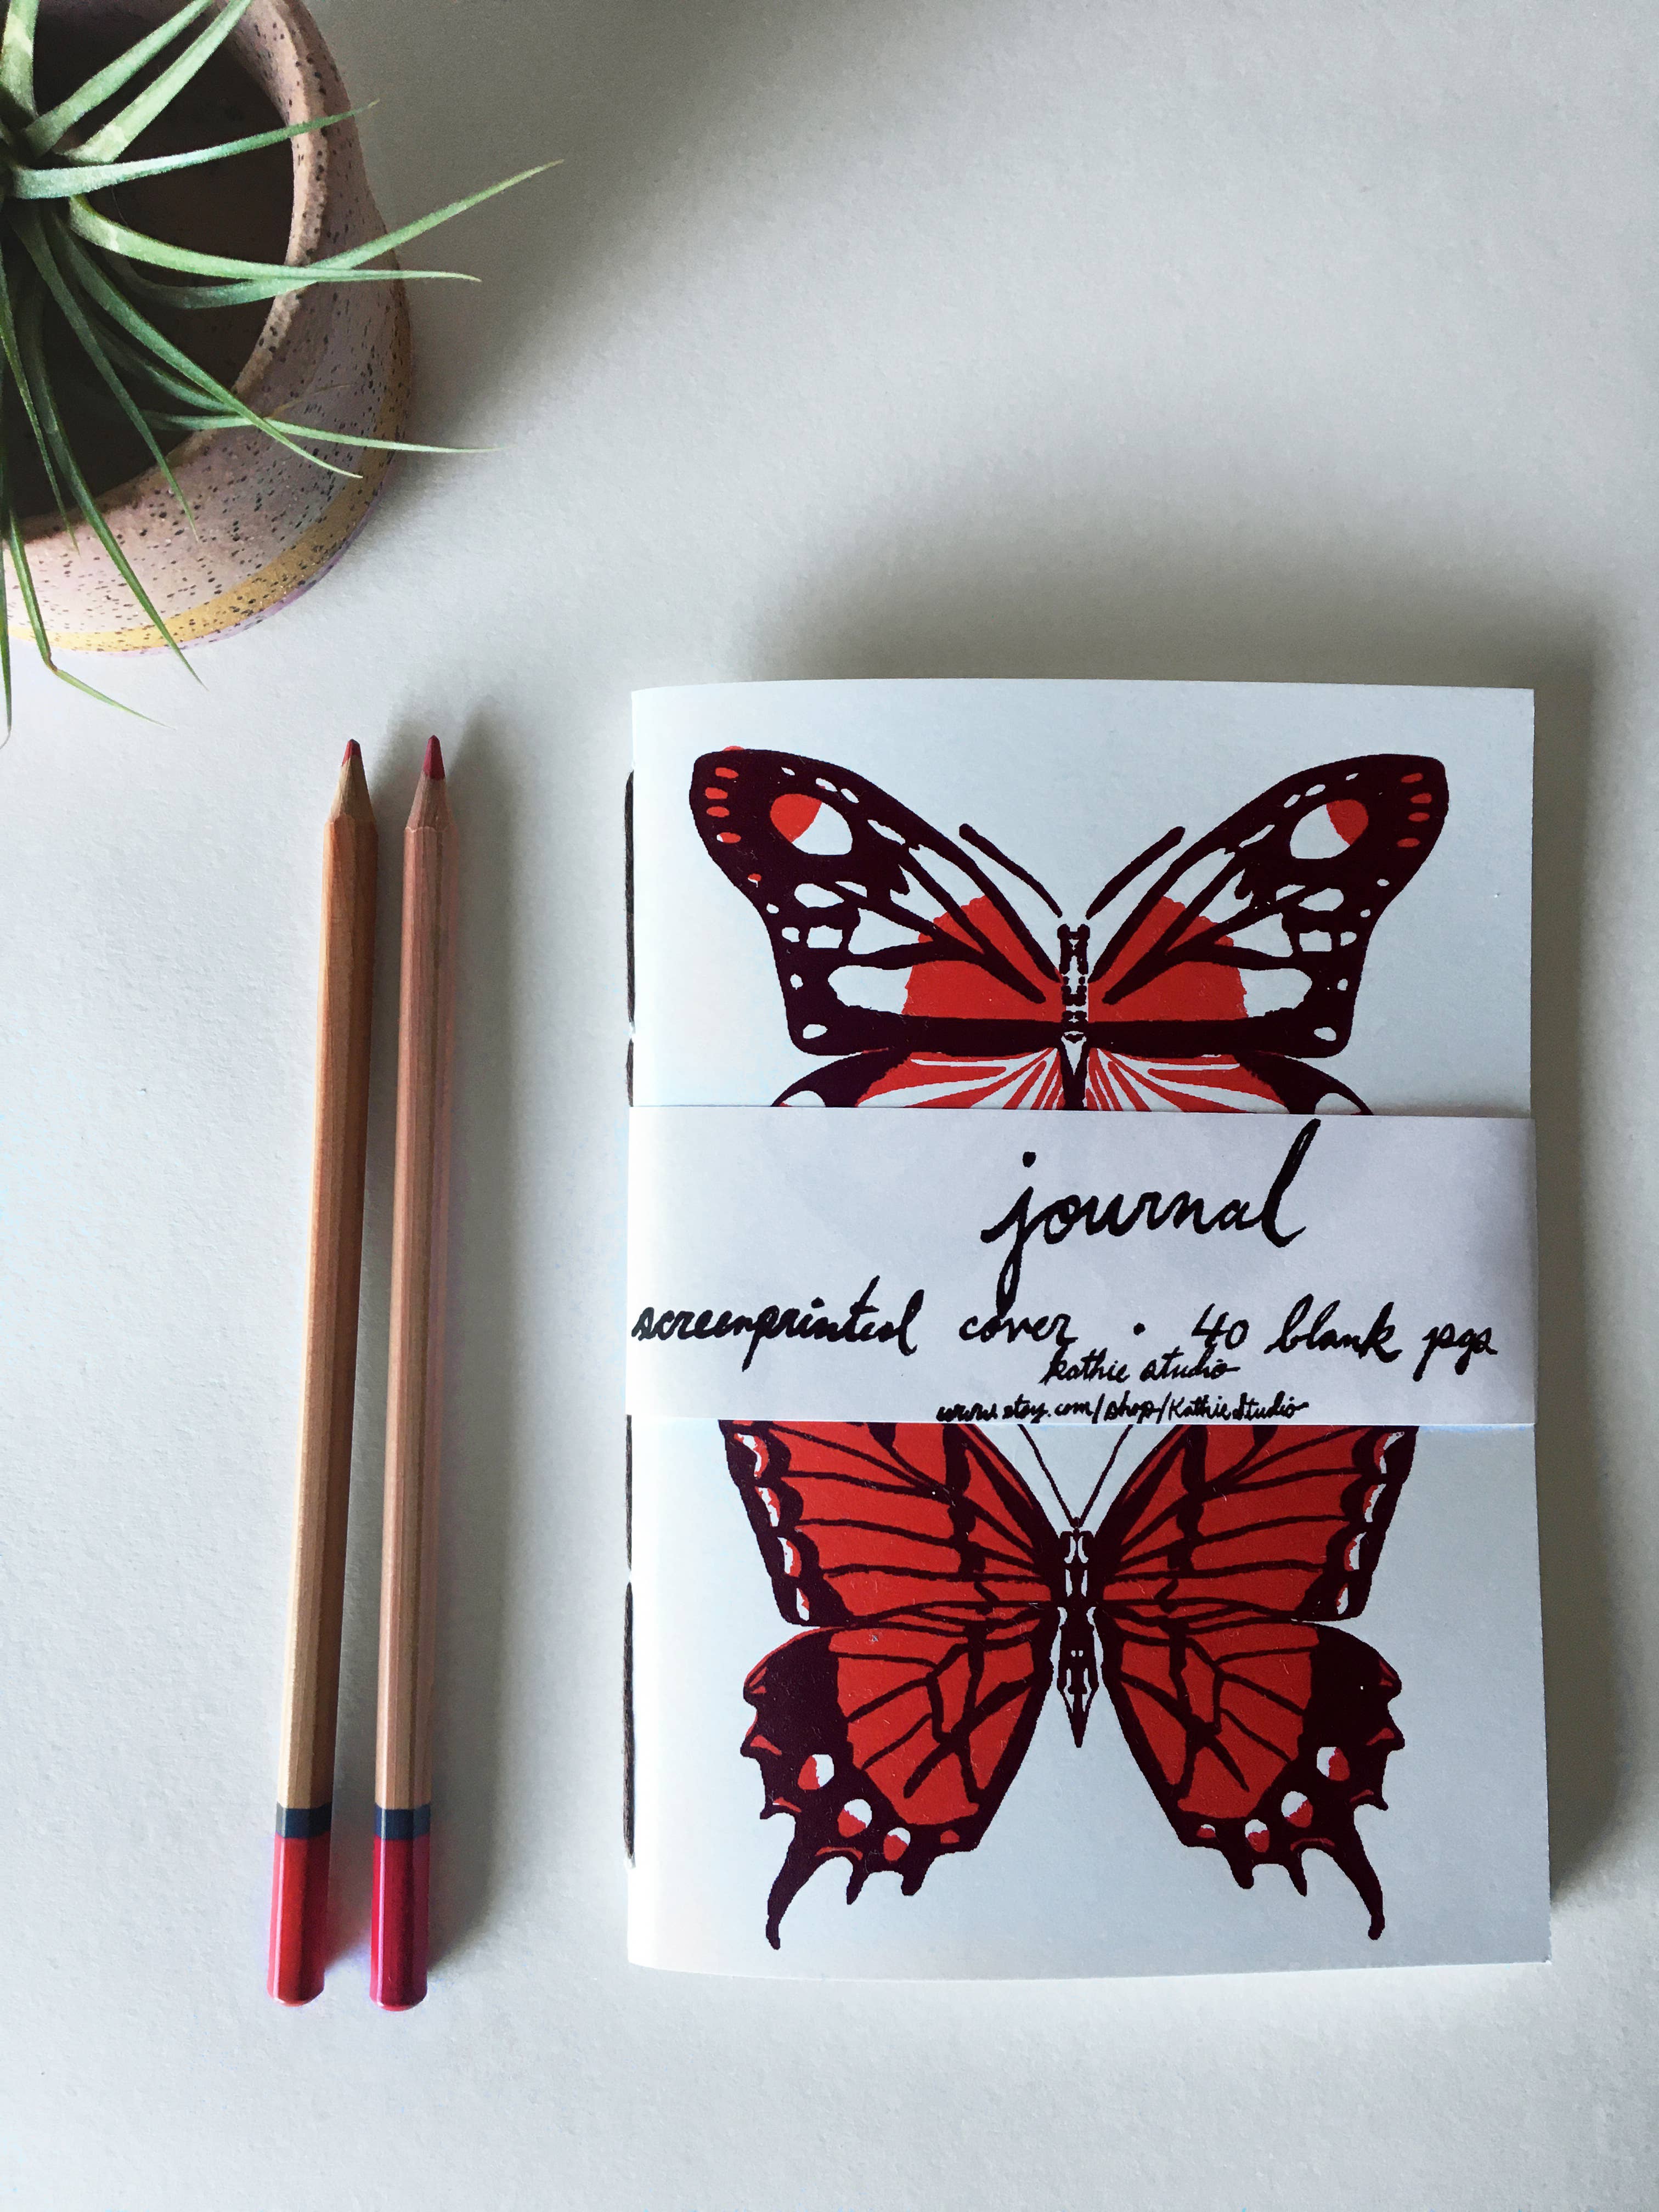 journal
screenprinted cover · 40 blank pgs
kathie studio
www.etsy.com/shop/KathieStudio